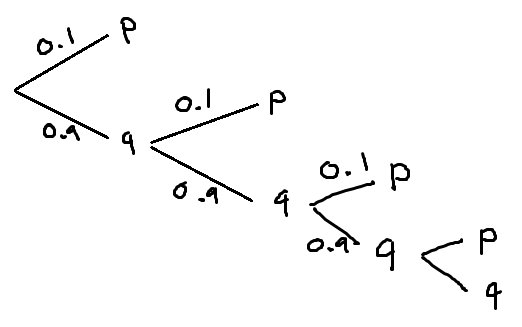 0.1 p
0.9 q
0.1 p
0.9 q
0.1 p
0.9 q
p
q